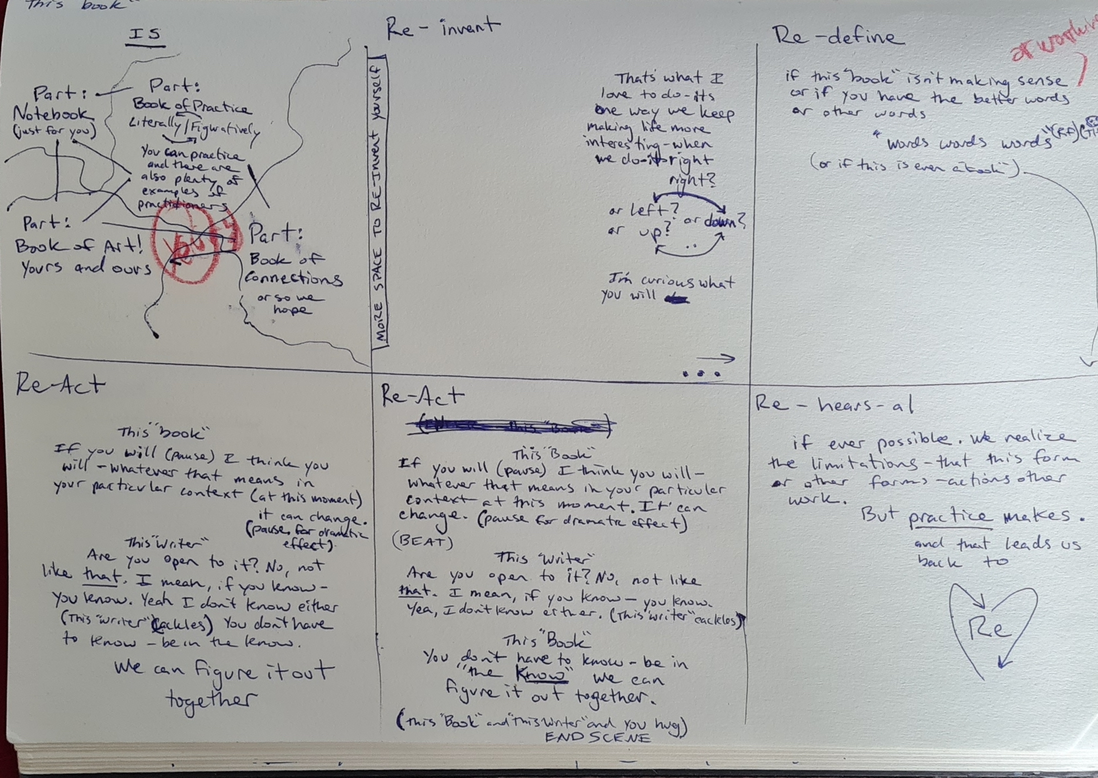 This book"
IS
Part:
Notebook
(just for you)
Part:
Book of Practice
Literally/Figuratively
You can practice
and there are
also plenty of
examples of
practitioners
Part:
Book of Art!
Yours and ours
Part:
Book of
Connections
or so we
hope
Re-invent
MORE SPACE TO RE-INVENT yourself
That's what I
love to do-its
one way we keep
making life more
interesting-when
we do it right
right?
or left?
or up?
or down?
I'm curious what
you will
...
Re-define
if this "book" isn't making sense
or if you have the better words
or other words
words words words
(or if this is even a "book")
Re-Act
This "book"
If you will (pause) I think you
will - whatever that means in
your particular context (at this moment)
it can change.
(pause for dramatic
effect)
This "writer"
Are you open to it? No, not
like that. I mean, if you know-
you know. Yeah I don't know either
(This "writer" cackles) You don't have
to know - be in the know.
We can figure it out
together
Re-Act
This "Book"
If you will (pause) I think you will-
whatever that means in your particular
context at this moment. It can
change. (pause for dramatic effect)
(BEAT)
This "writer"
Are you open to it? No, not like
that. I mean, if you know - you know.
Yea, I don't know either. (This "writer" cackles)
This "Book"
You don't have to know - be in
"the Know" we can
figure it out together.
(This "Book" and "This Writer" and you hug)
END SCENE
Re-hears-al
if ever possible. We realize
the limitations - that this form
or other forms - actions other
work.
But practice makes.
and that leads us
back to
Re